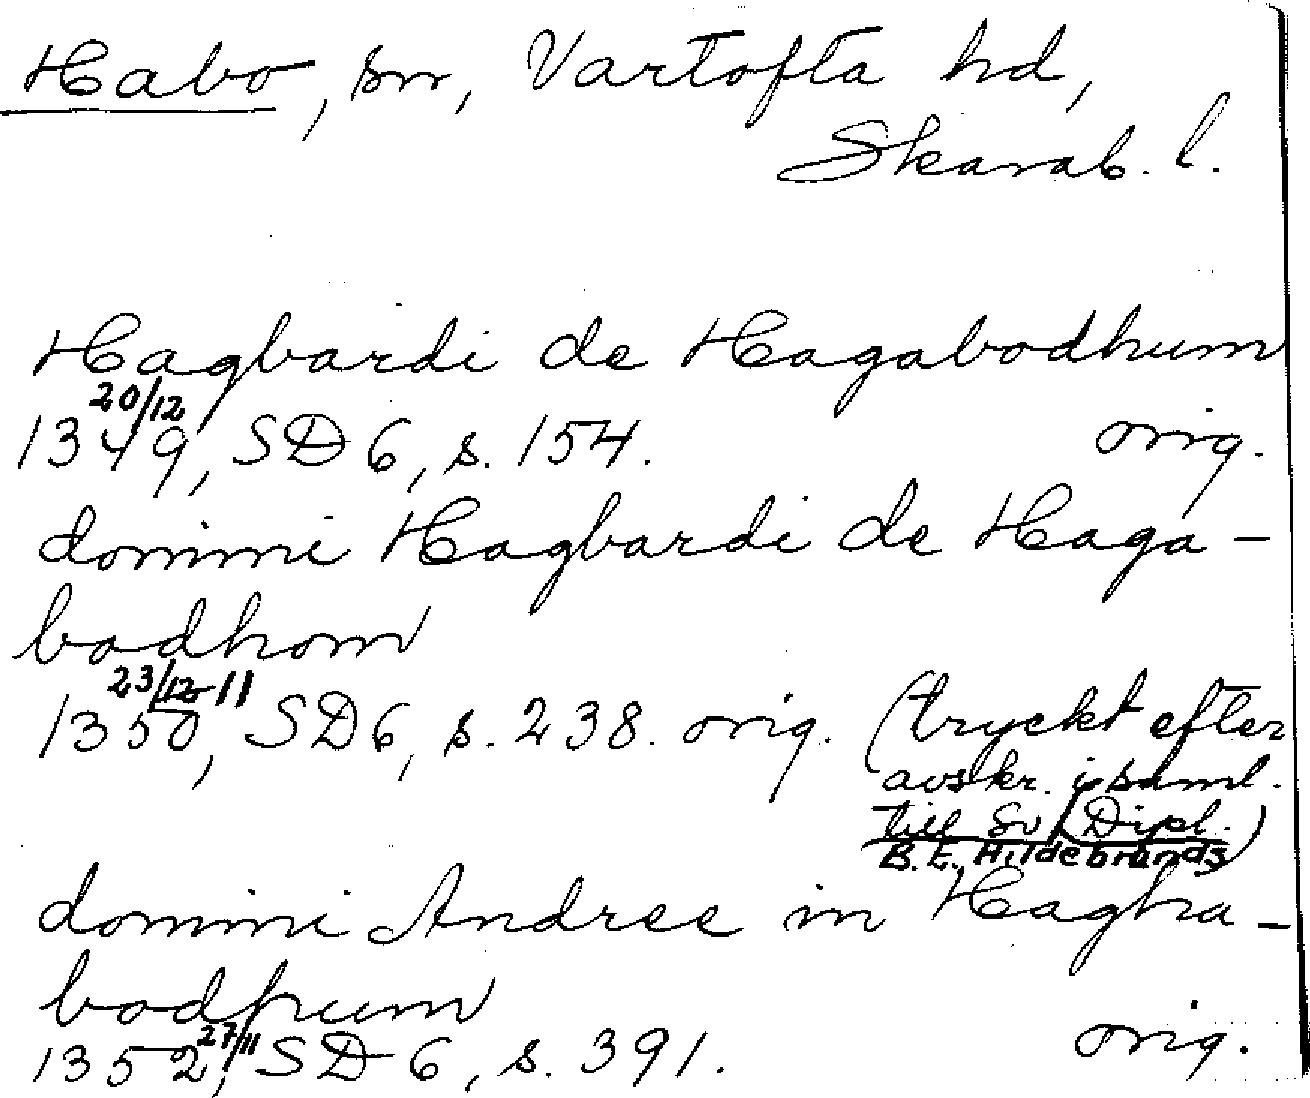 Habo, sn, Vartofta hd,
Skarab. l.
Hagbardi de Hagabodhum
20/12
1349, SD 6, s. 154. orig.
domini Hagbardi de Haga-
bodhom
23/12 11
1350, SD 6, s. 238. orig. (tryckt efter
avskr. i saml.
till Sv Dipl.)
B.E. Hildebrands
domini Andree in Hagha-
bodhum
27/11
1352, SD 6, s. 391. orig.